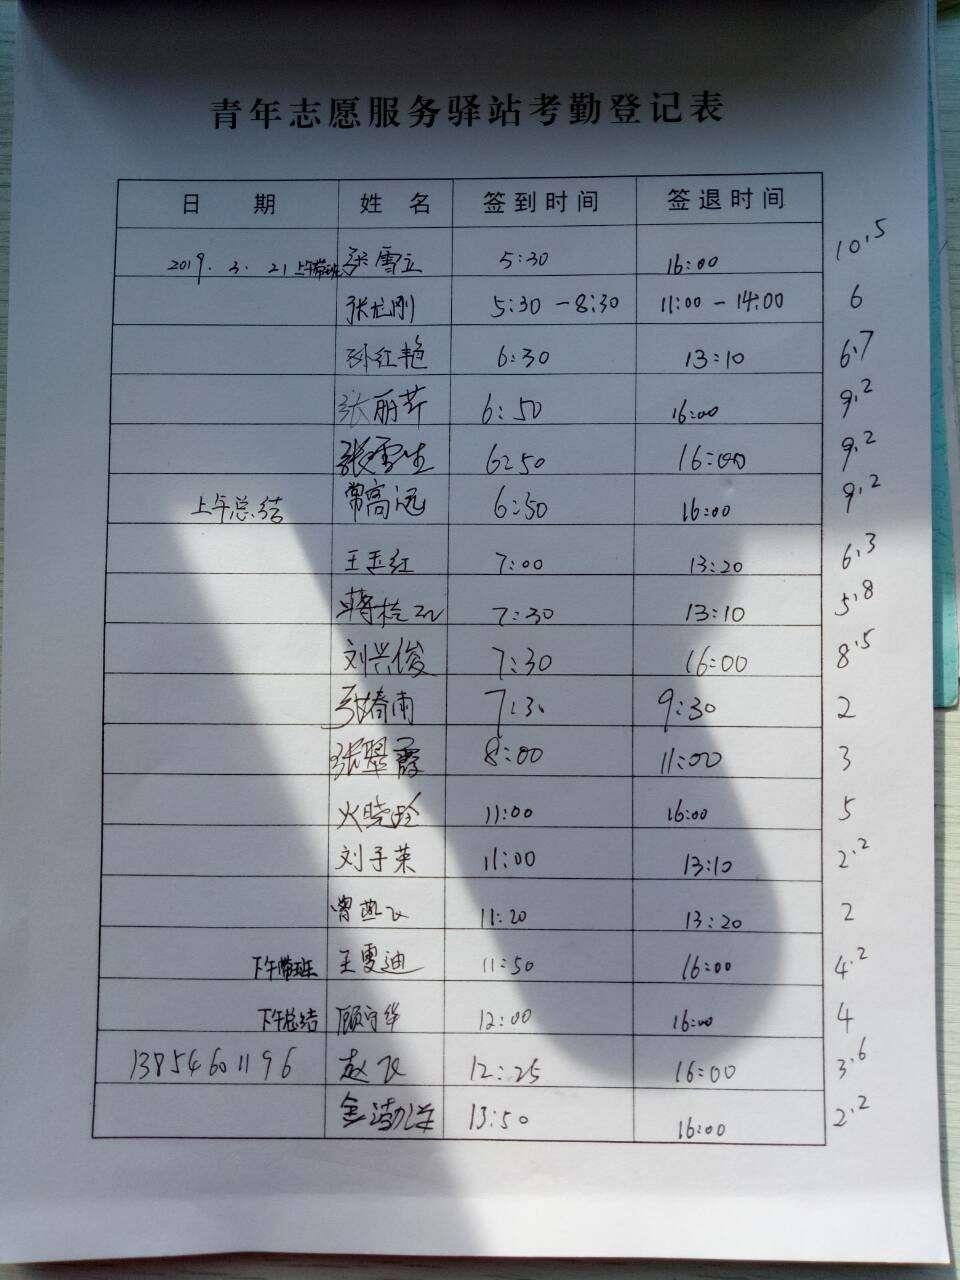 青年志愿服务驿站考勤登记表
日 期 姓 名 签到时间 签退时间
2019. 3. 21 上午带班 张雪立 5:30 16:00 10.5
张龙刚 5:30-8:30 11:00-14:00 6
孙红艳 6:30 13:10 6.7
张丽芹 6:50 16:00 9.2
张雪生 6:50 16:00 9.2
上午总结 常高远 6:50 16:00 9.2
王玉红 7:00 13:20 6.3
蒋桂 7:30 13:10 5.8
刘兴俊 7:30 16:00 8.5
张春雨 7:3 9:30 2
张翠霞 8:00 11:00 3
火晓 11:00 16:00 5
刘子荣 11:00 13:10 2.2
曾燕飞 11:20 13:20 2
下午带班 王雯迪 11:50 16:00 4.2
下午总结 顾守华 12:00 16:00 4
13854601196 赵飞 12:25 16:00 3.6
13:50 16:00 2.2